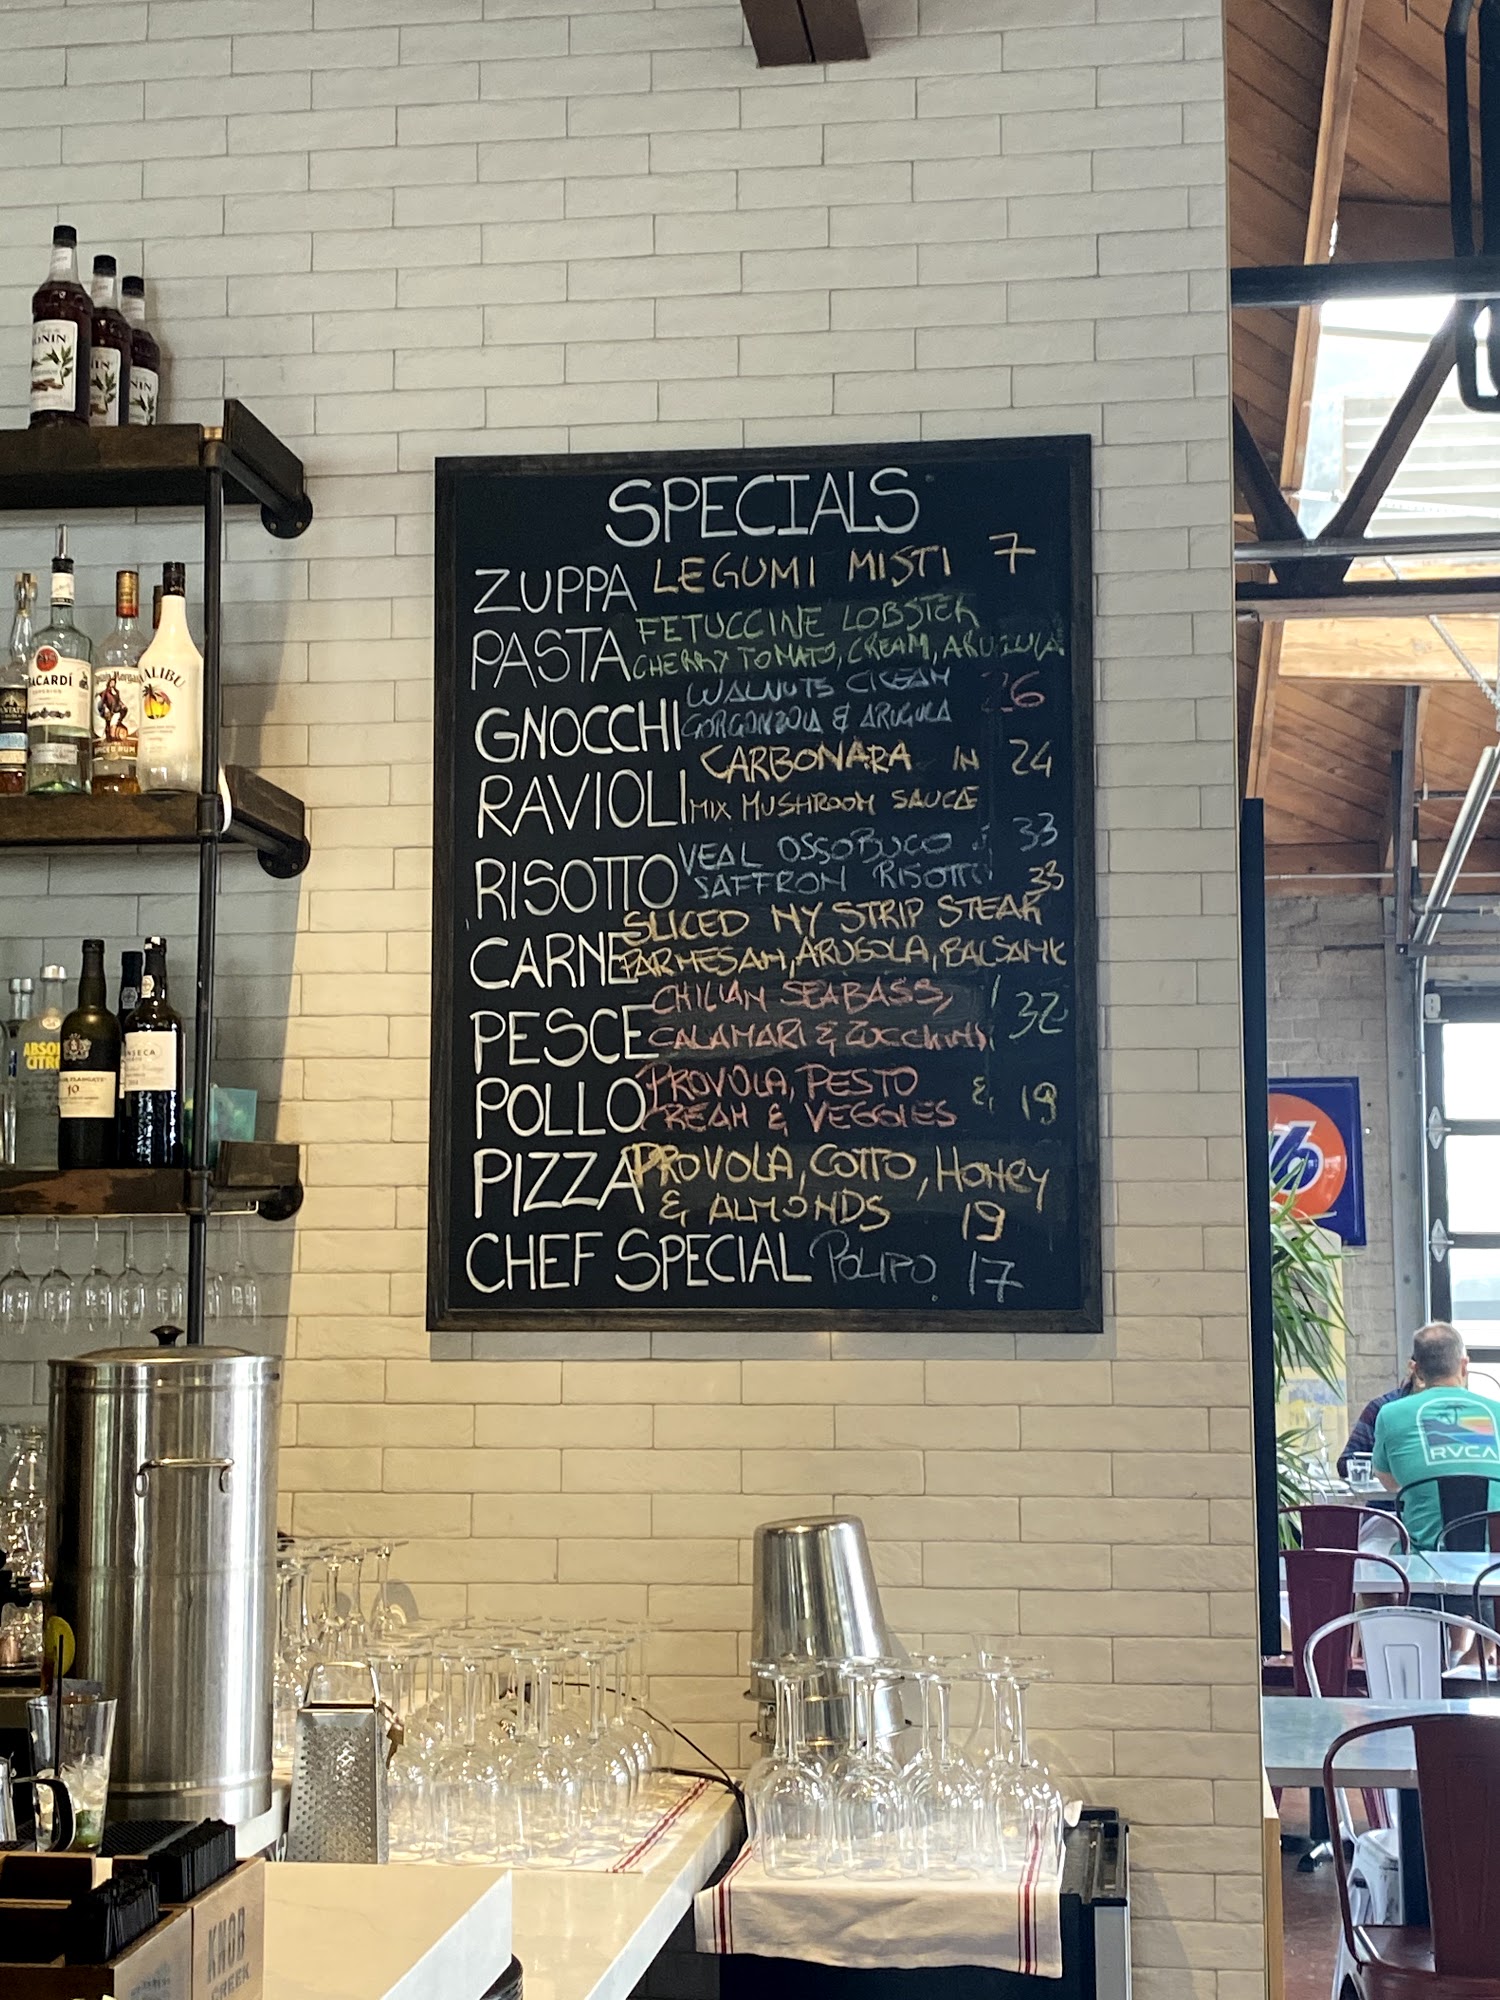 SPECIALS
ZUPPA LEGUMI MISTI 7
PASTA FETUCCINE LOBSTER
CHERRY TOMATO, CREAM, ARUGULA
GNOCCHI WALNUTS CREAM 26
GORGONZOLA & ARUGULA
RAVIOLI CARBONARA IN 24
MIX MUSHROOM SAUCE
RISOTTO VEAL OSSOBUCO 33
SAFFRON RISOTTO 33
CARNE SLICED NY STRIP STEAK
PARMESAN, ARUGOLA, BALSAMIC
PESCE CHILIAN SEABASS, 32
CALAMARI & ZUCCHINI
POLLO PROVOLA, PESTO & 19
CREAM & VEGGIES
PIZZA PROVOLA, COTTO, HONEY
& ALMONDS 19
CHEF SPECIAL POLIPO 17
MONIN
BACARDÍ
SUPERIOR
Captain Morgan
SPICED RUM
MALIBU
ABSOLUT
CITRON
FONSECA
10
76
RVCA
KNOB
CREEK